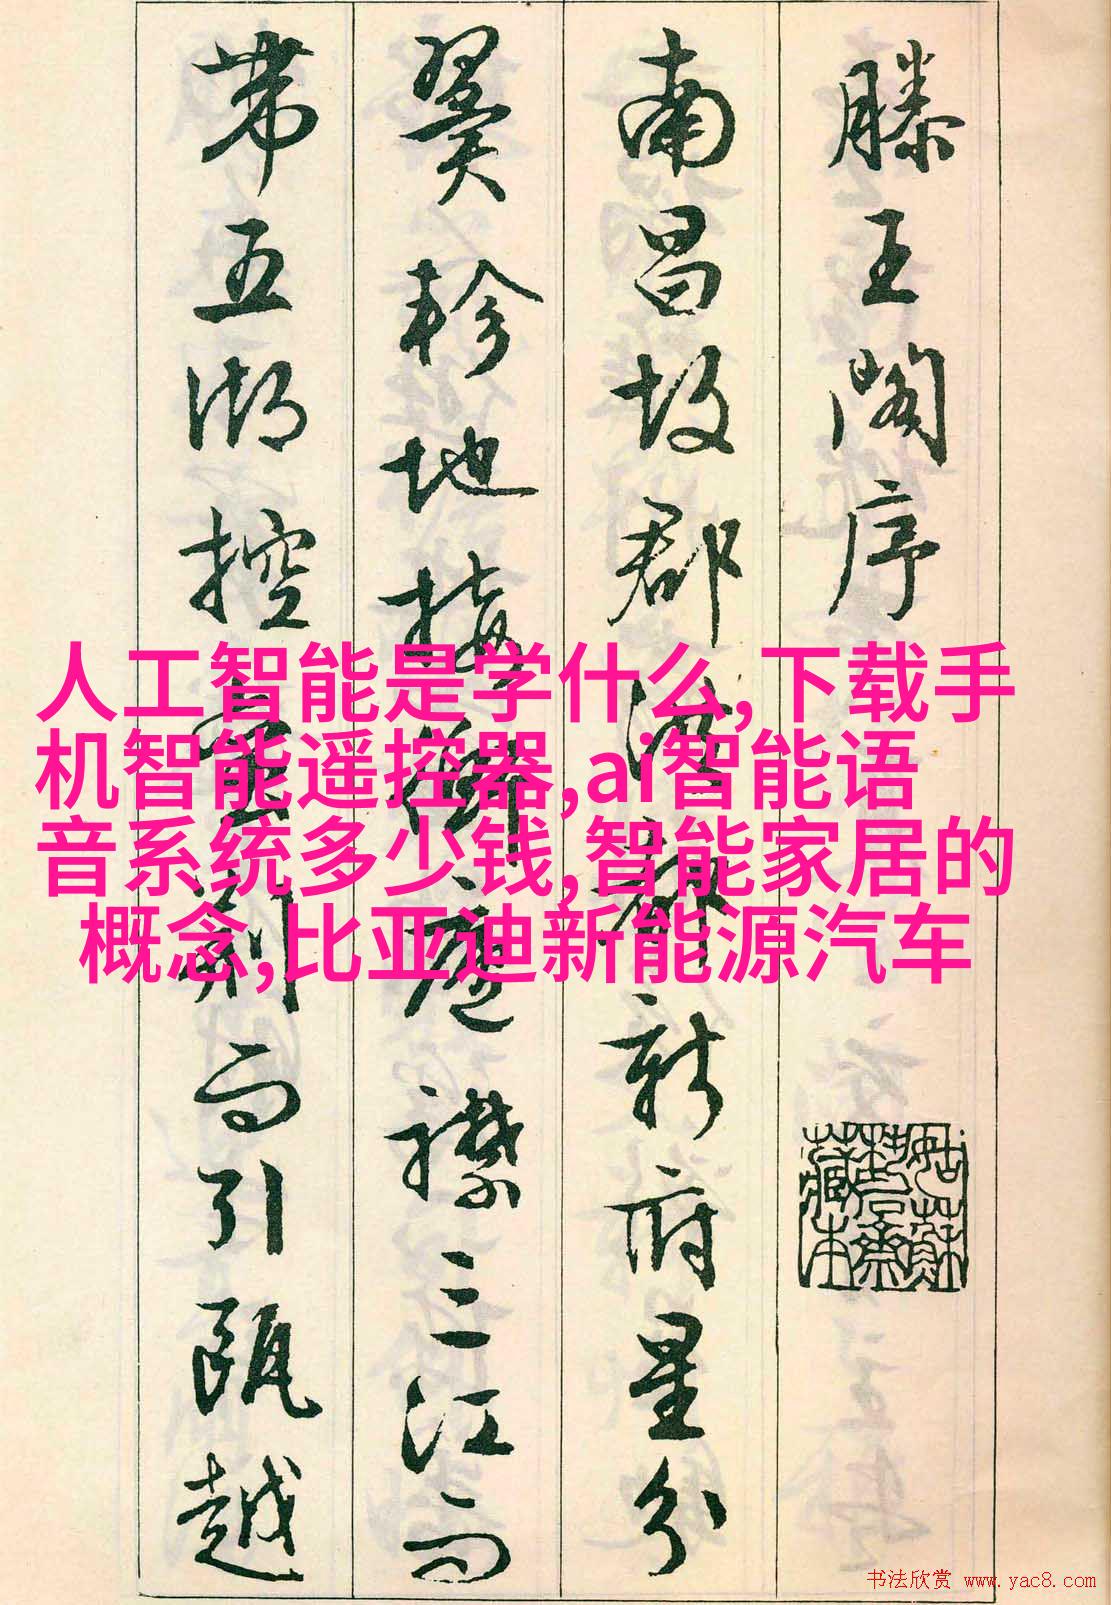 滕王閣序
南昌故郡洪都新府星分
翼軫地接衡廬襟三江而
帶五湖控蠻荊而引甌越
人工智能是学什么,下载手
机智能遥控器,ai智能语
音系统多少钱,智能家居的
概念,比亚迪新能源汽车
书法欣赏 www.yac8.com